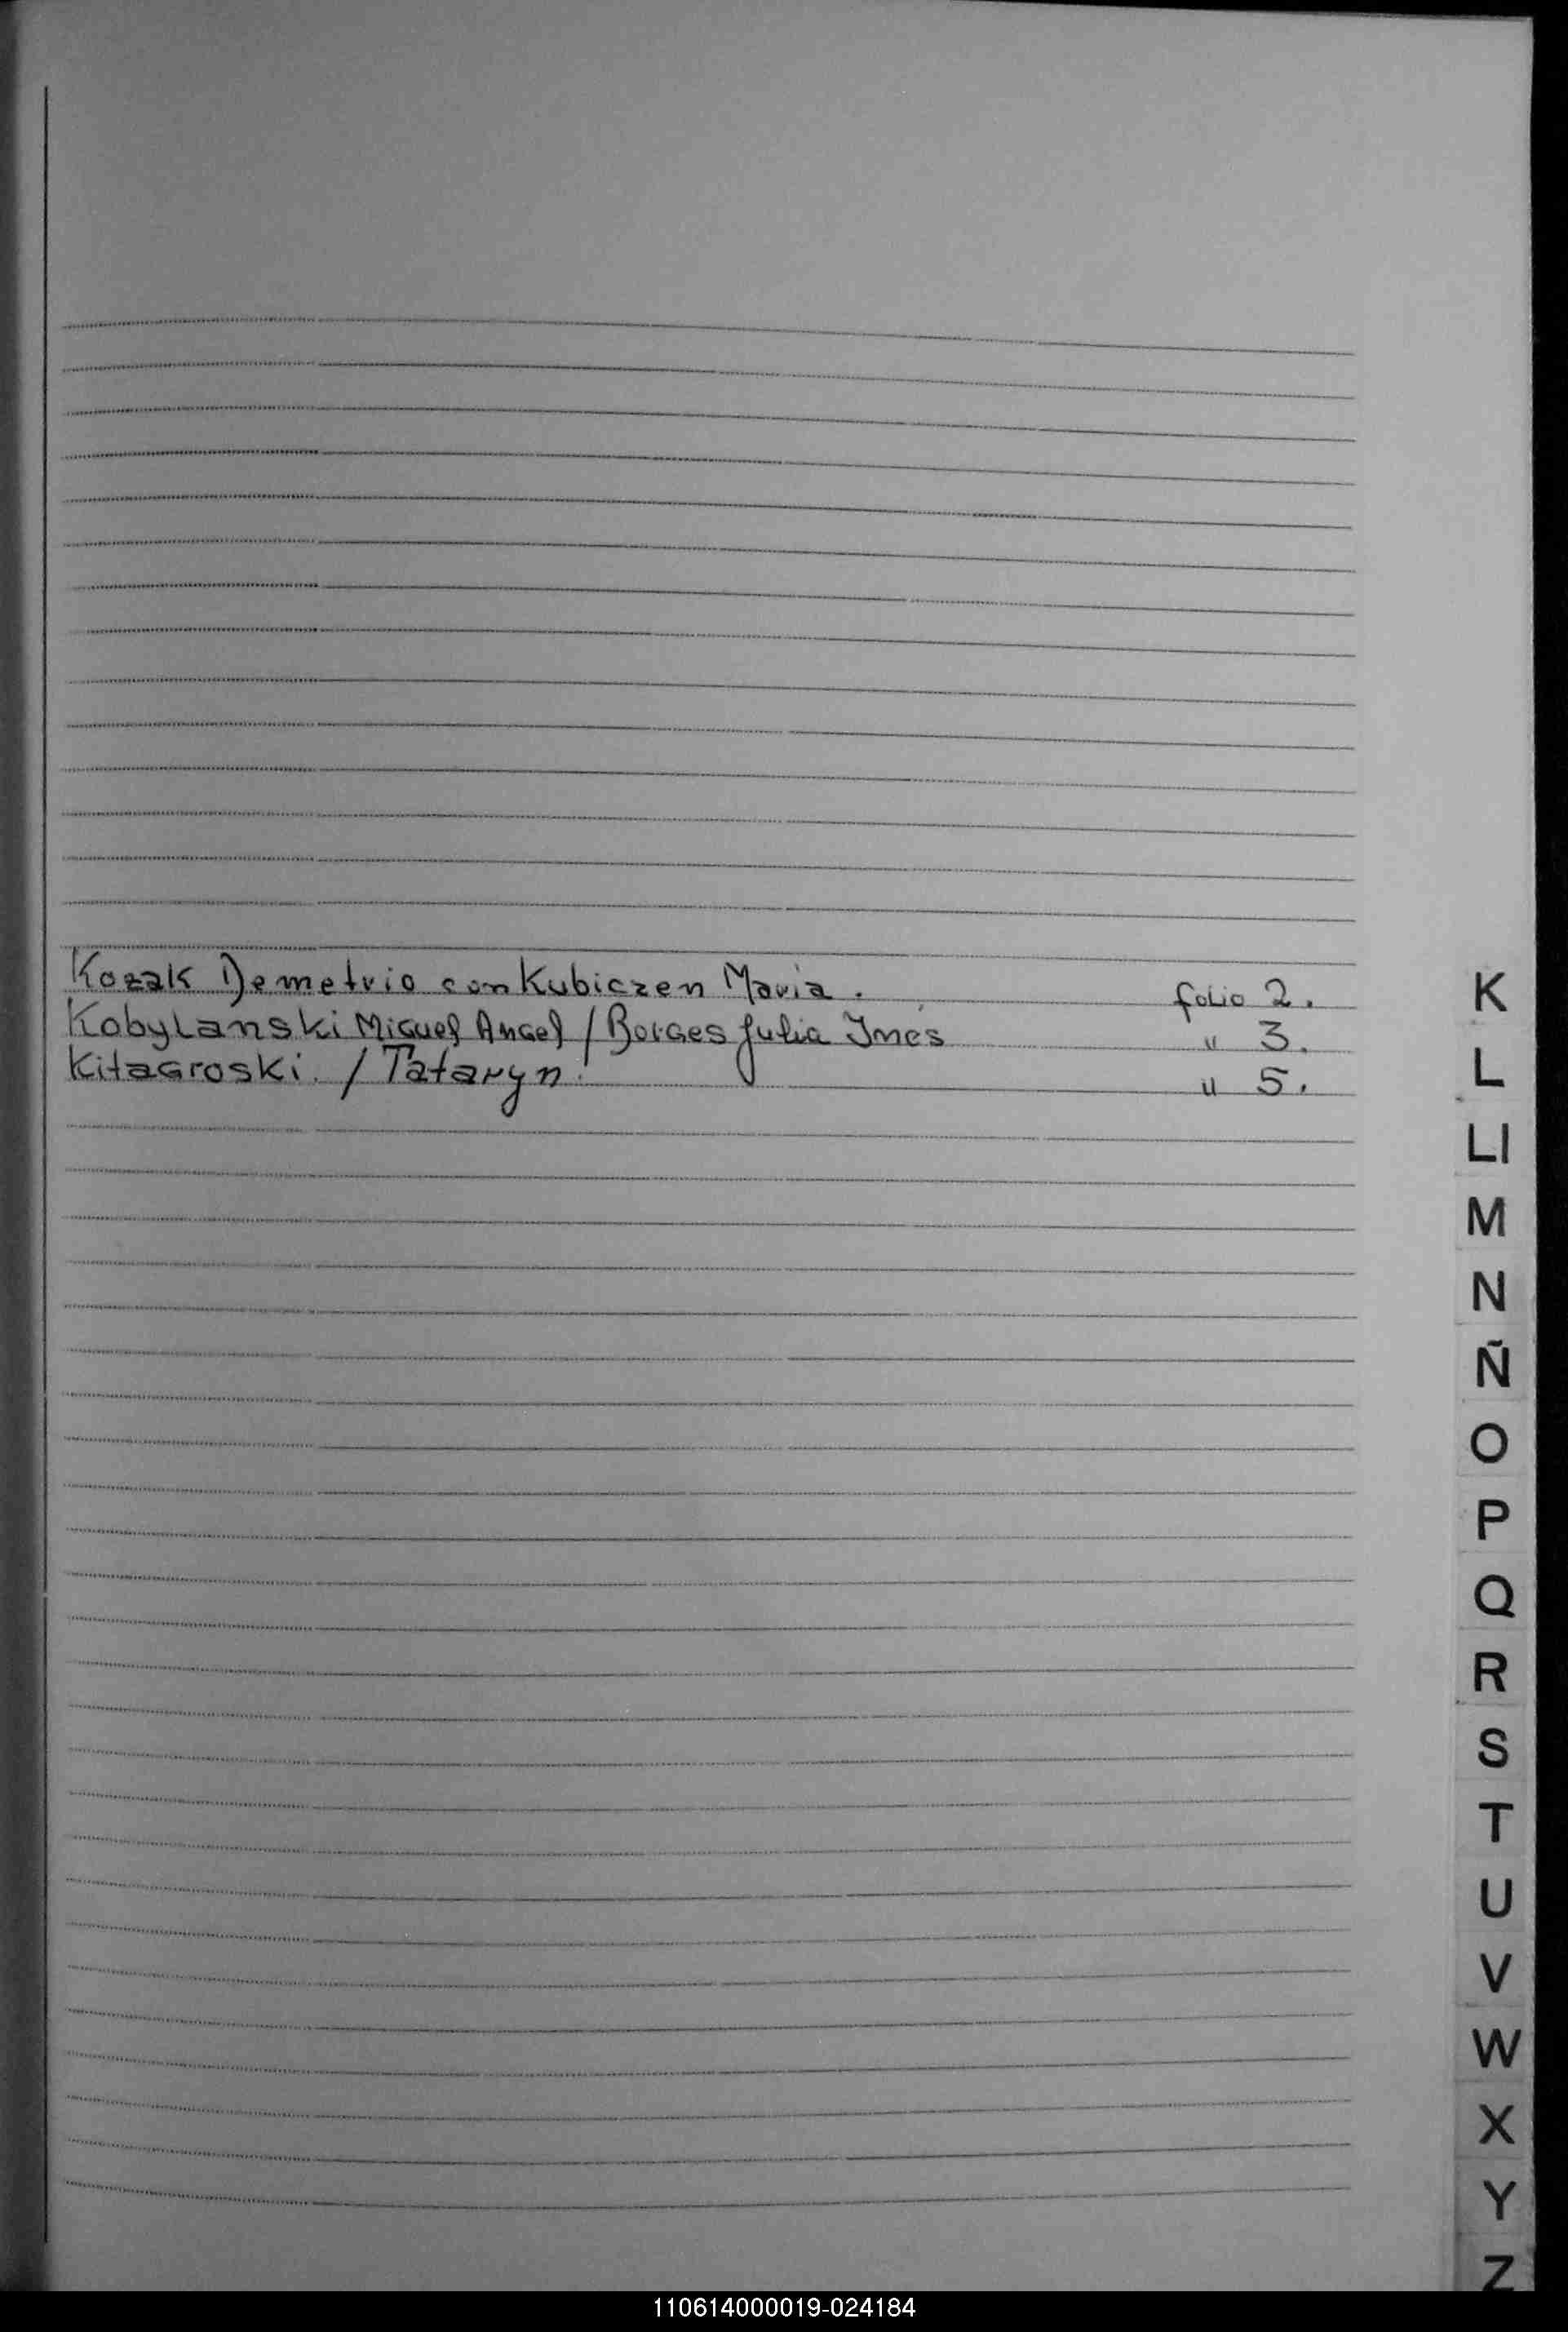 Kozak Demetrio con Kubiczen Maria. folio 2.
Kobylanski Miguel Angel / Borges Julia Ines " 3.
Kitagroski. / Tataryn. " 5.
K
L
Ll
M
N
Ñ
O
P
Q
R
S
T
U
V
W
X
Y
Z
110614000019-024184